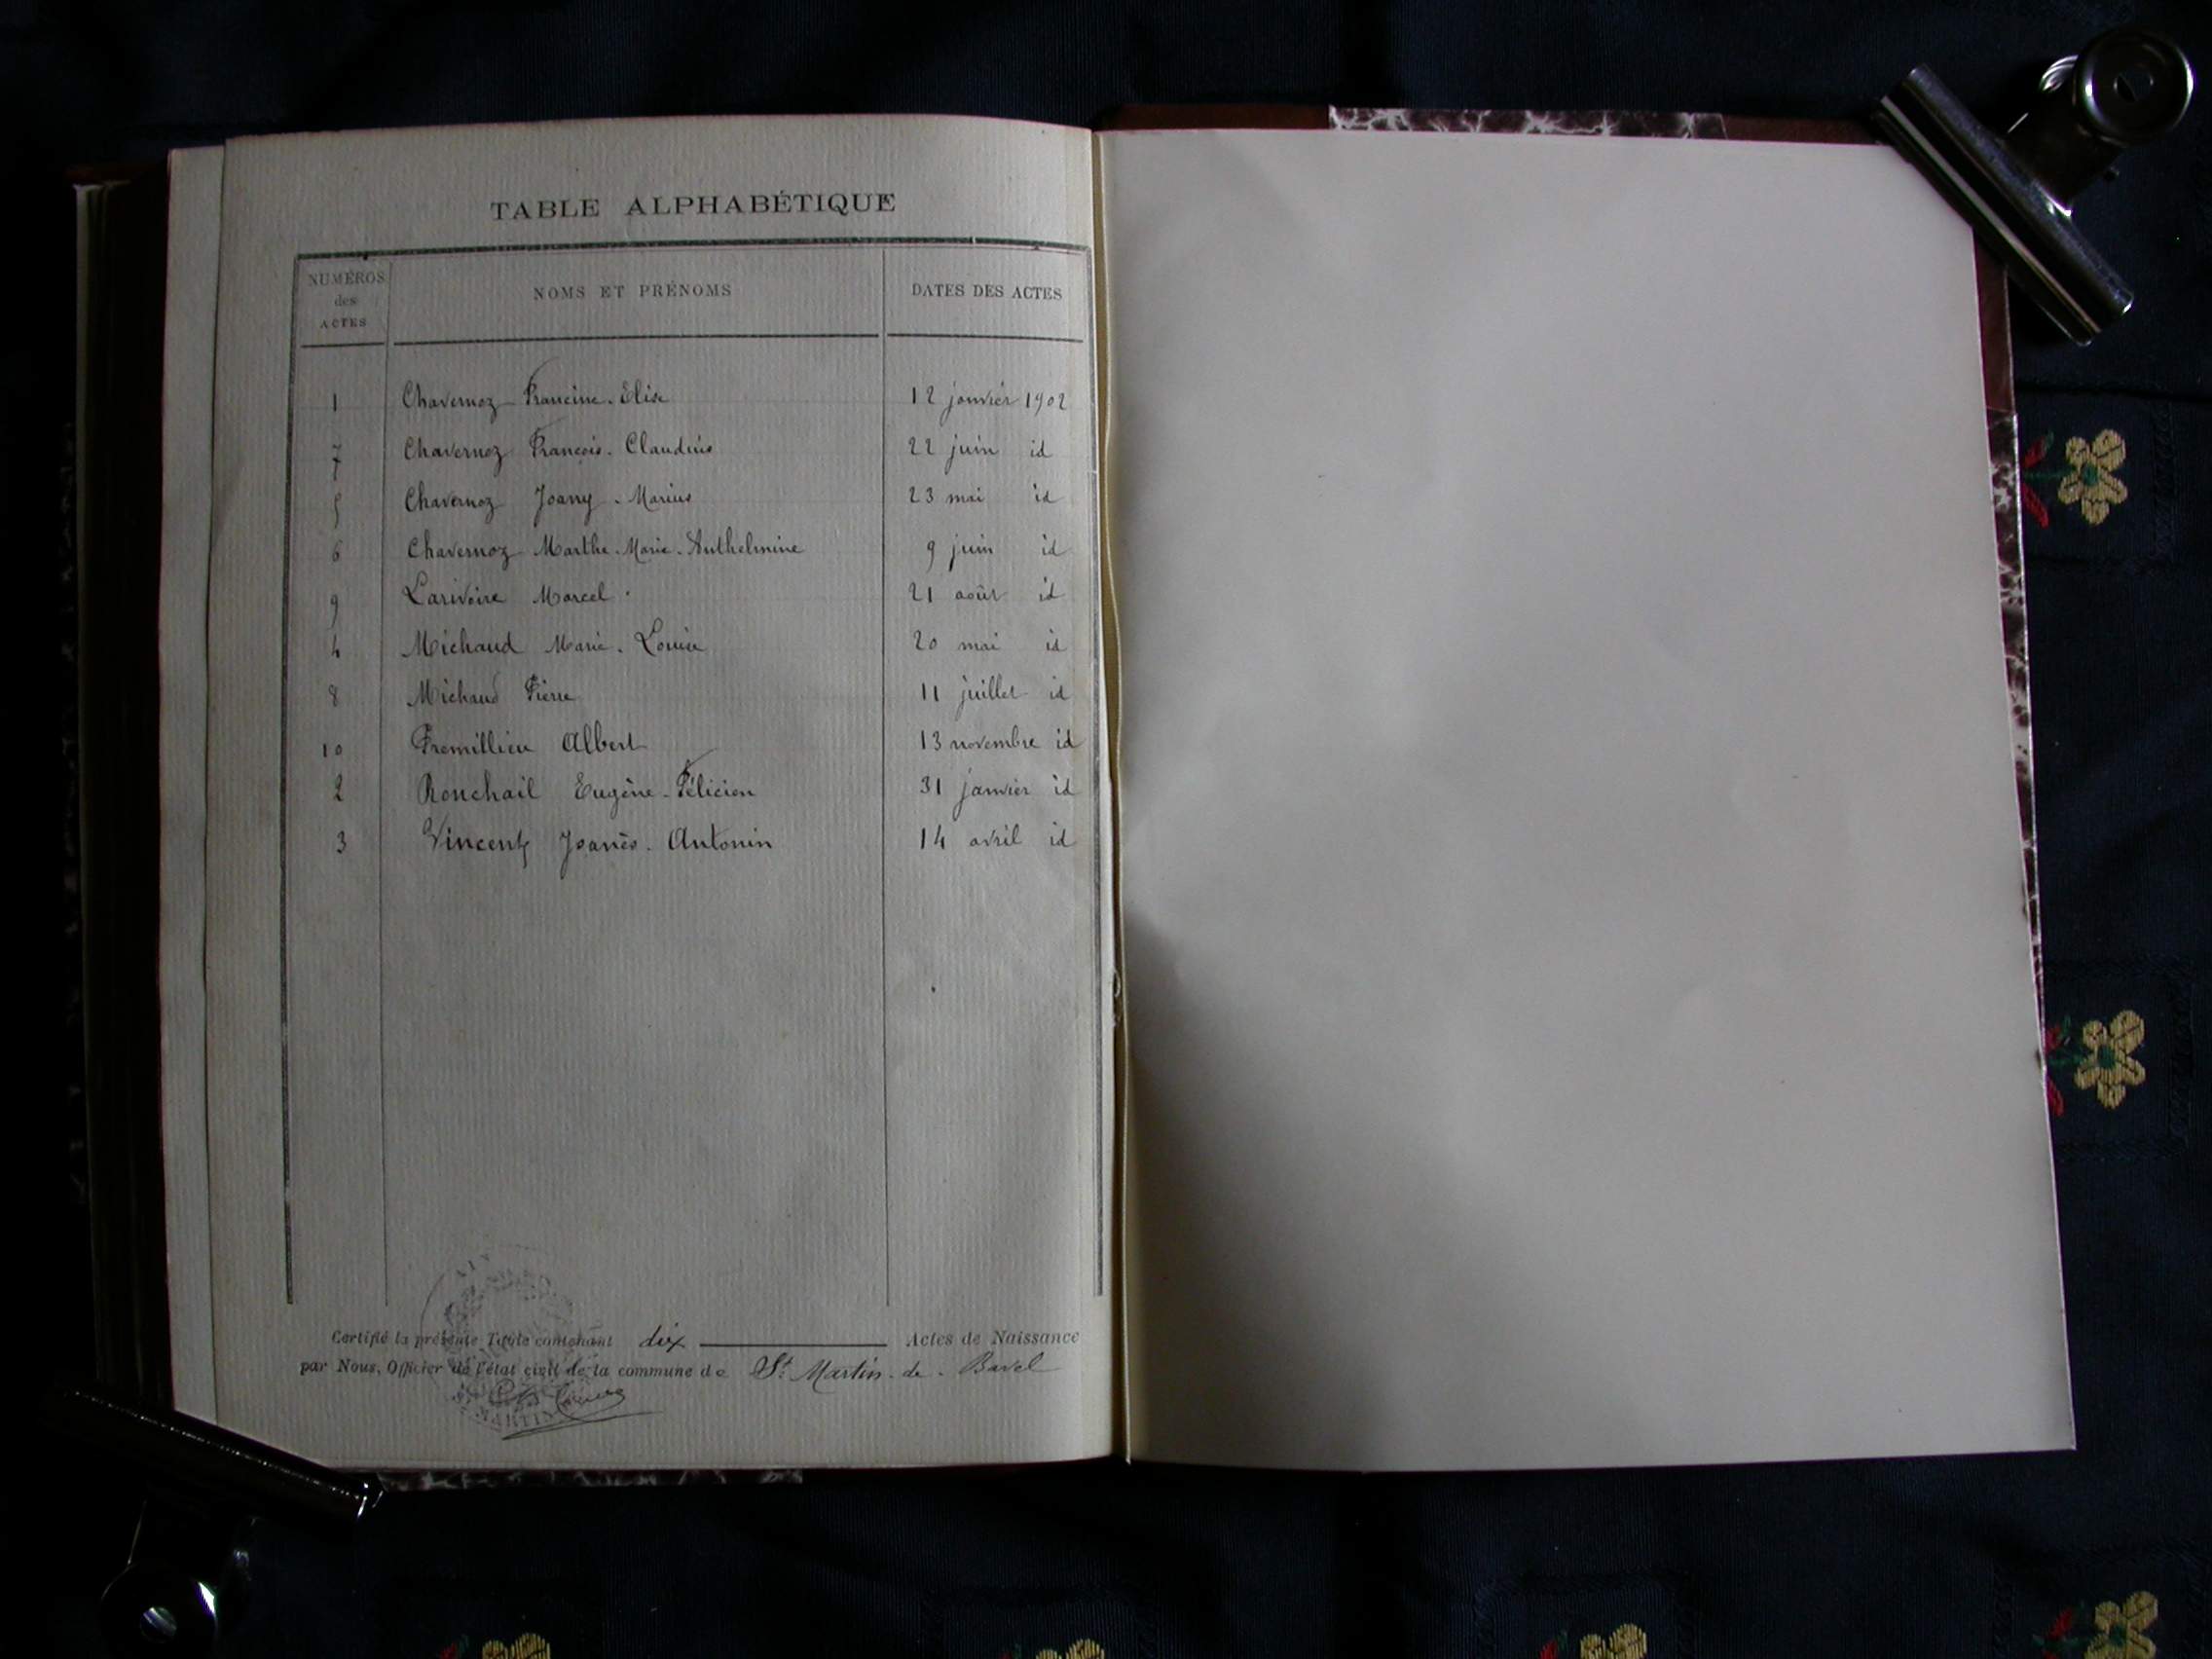 TABLE ALPHABÉTIQUE
NUMÉROS des ACTES NOMS ET PRÉNOMS DATES DES ACTES
1 Chavernoz Francine-Elise 12 janvier 1902
7 Chavernoz François-Claudius 22 juin id
5 Chavernoz Joany-Marius 23 mai id
6 Chavernoz Marthe-Marie-Anthelmine 9 juin id
9 Larivoire Marcel 21 août id
4 Michaud Marie-Louise 20 mai id
8 Michaud Pierre 11 juillet id
10 Premillieu Albert 13 novembre id
2 Ronchail Eugène-Félicien 31 janvier id
3 Vincent Joanès-Antonin 14 avril id
Certifié la présente Table contenant dix Actes de Naissance
par Nous, Officier de l'état civil de la commune de St Martin-de-Bavel
AIN
MARTIN